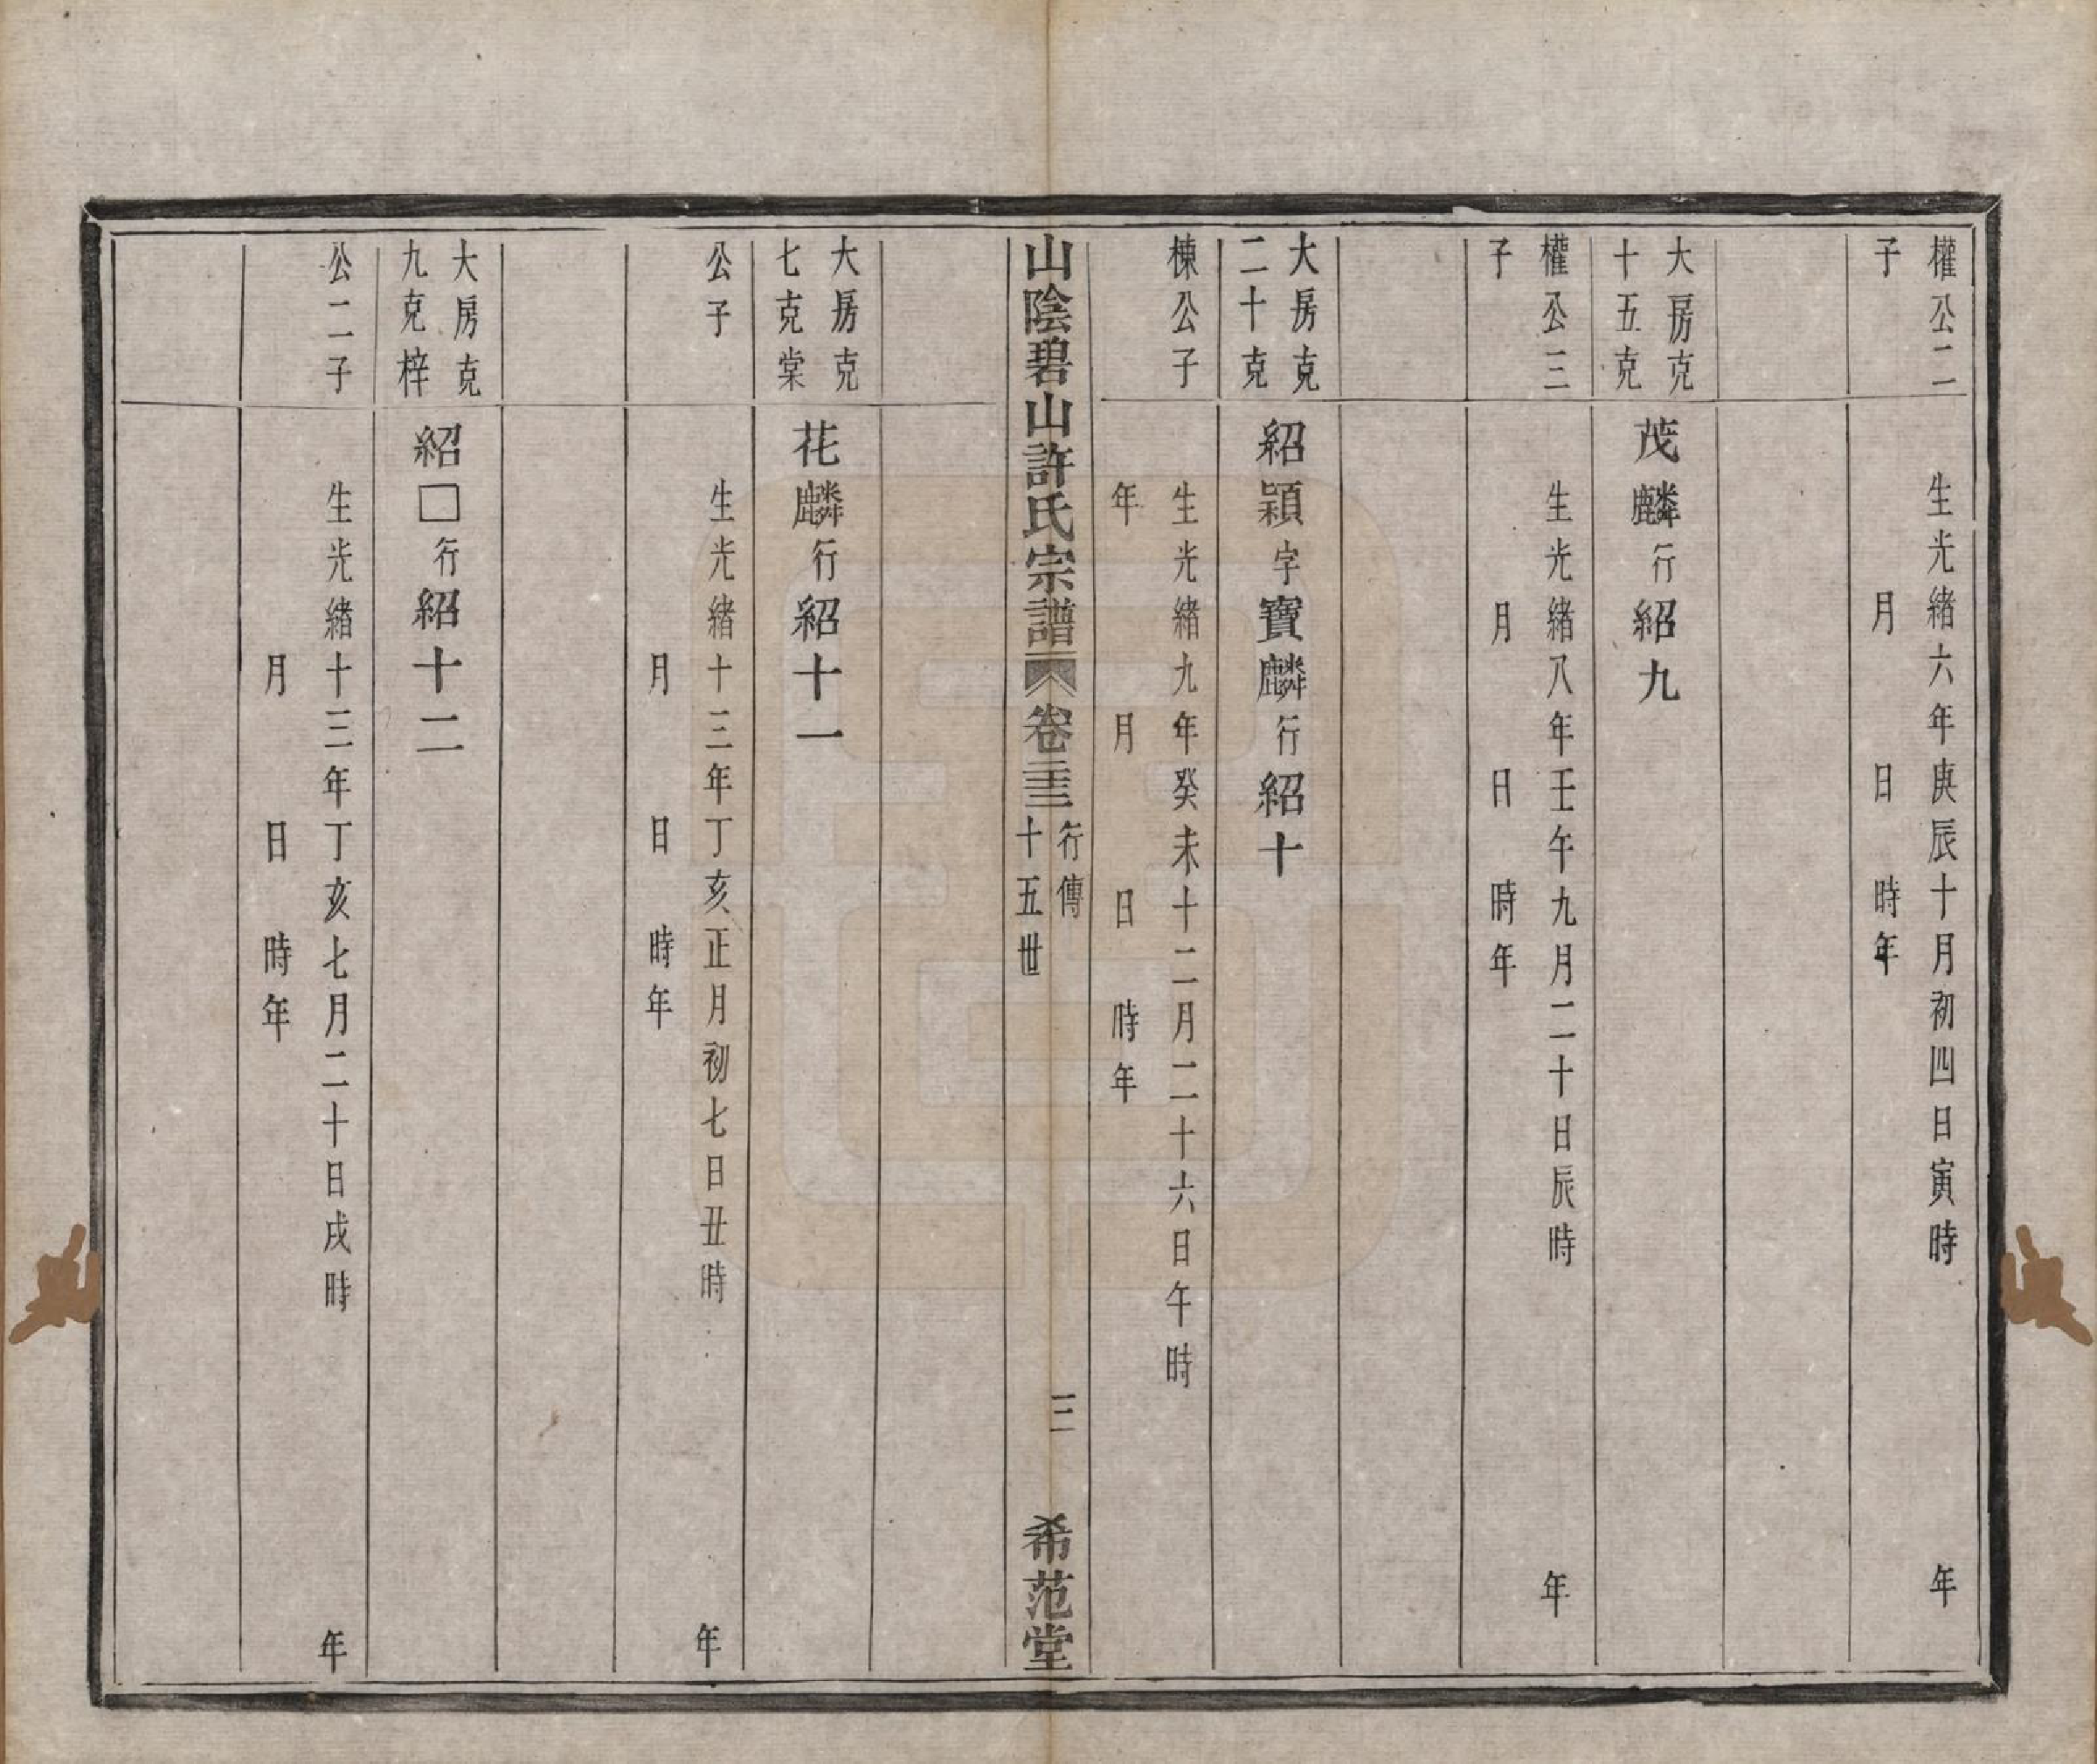 權公二
子
生光緒六年庚辰十月初四日寅時　年
月　日　時年
大房克
十五克
茂麟行紹九
權公三
子
生光緒八年壬午九月二十日辰時　年
月　日　時年
大房克
二十克
紹穎字寶麟行紹十
棟公子
生光緒九年癸未十二月二十六日午時
年　月　日　時年
山陰碧山許氏宗譜　卷三十三　行傳
十五世
三　希范堂
大房克
七克棠
花麟行紹十一
公子
生光緒十三年丁亥正月初七日丑時　年
月　日　時年
大房克
九克梓
紹□行紹十二
公二子
生光緒十三年丁亥七月二十日戌時　年
月　日　時年